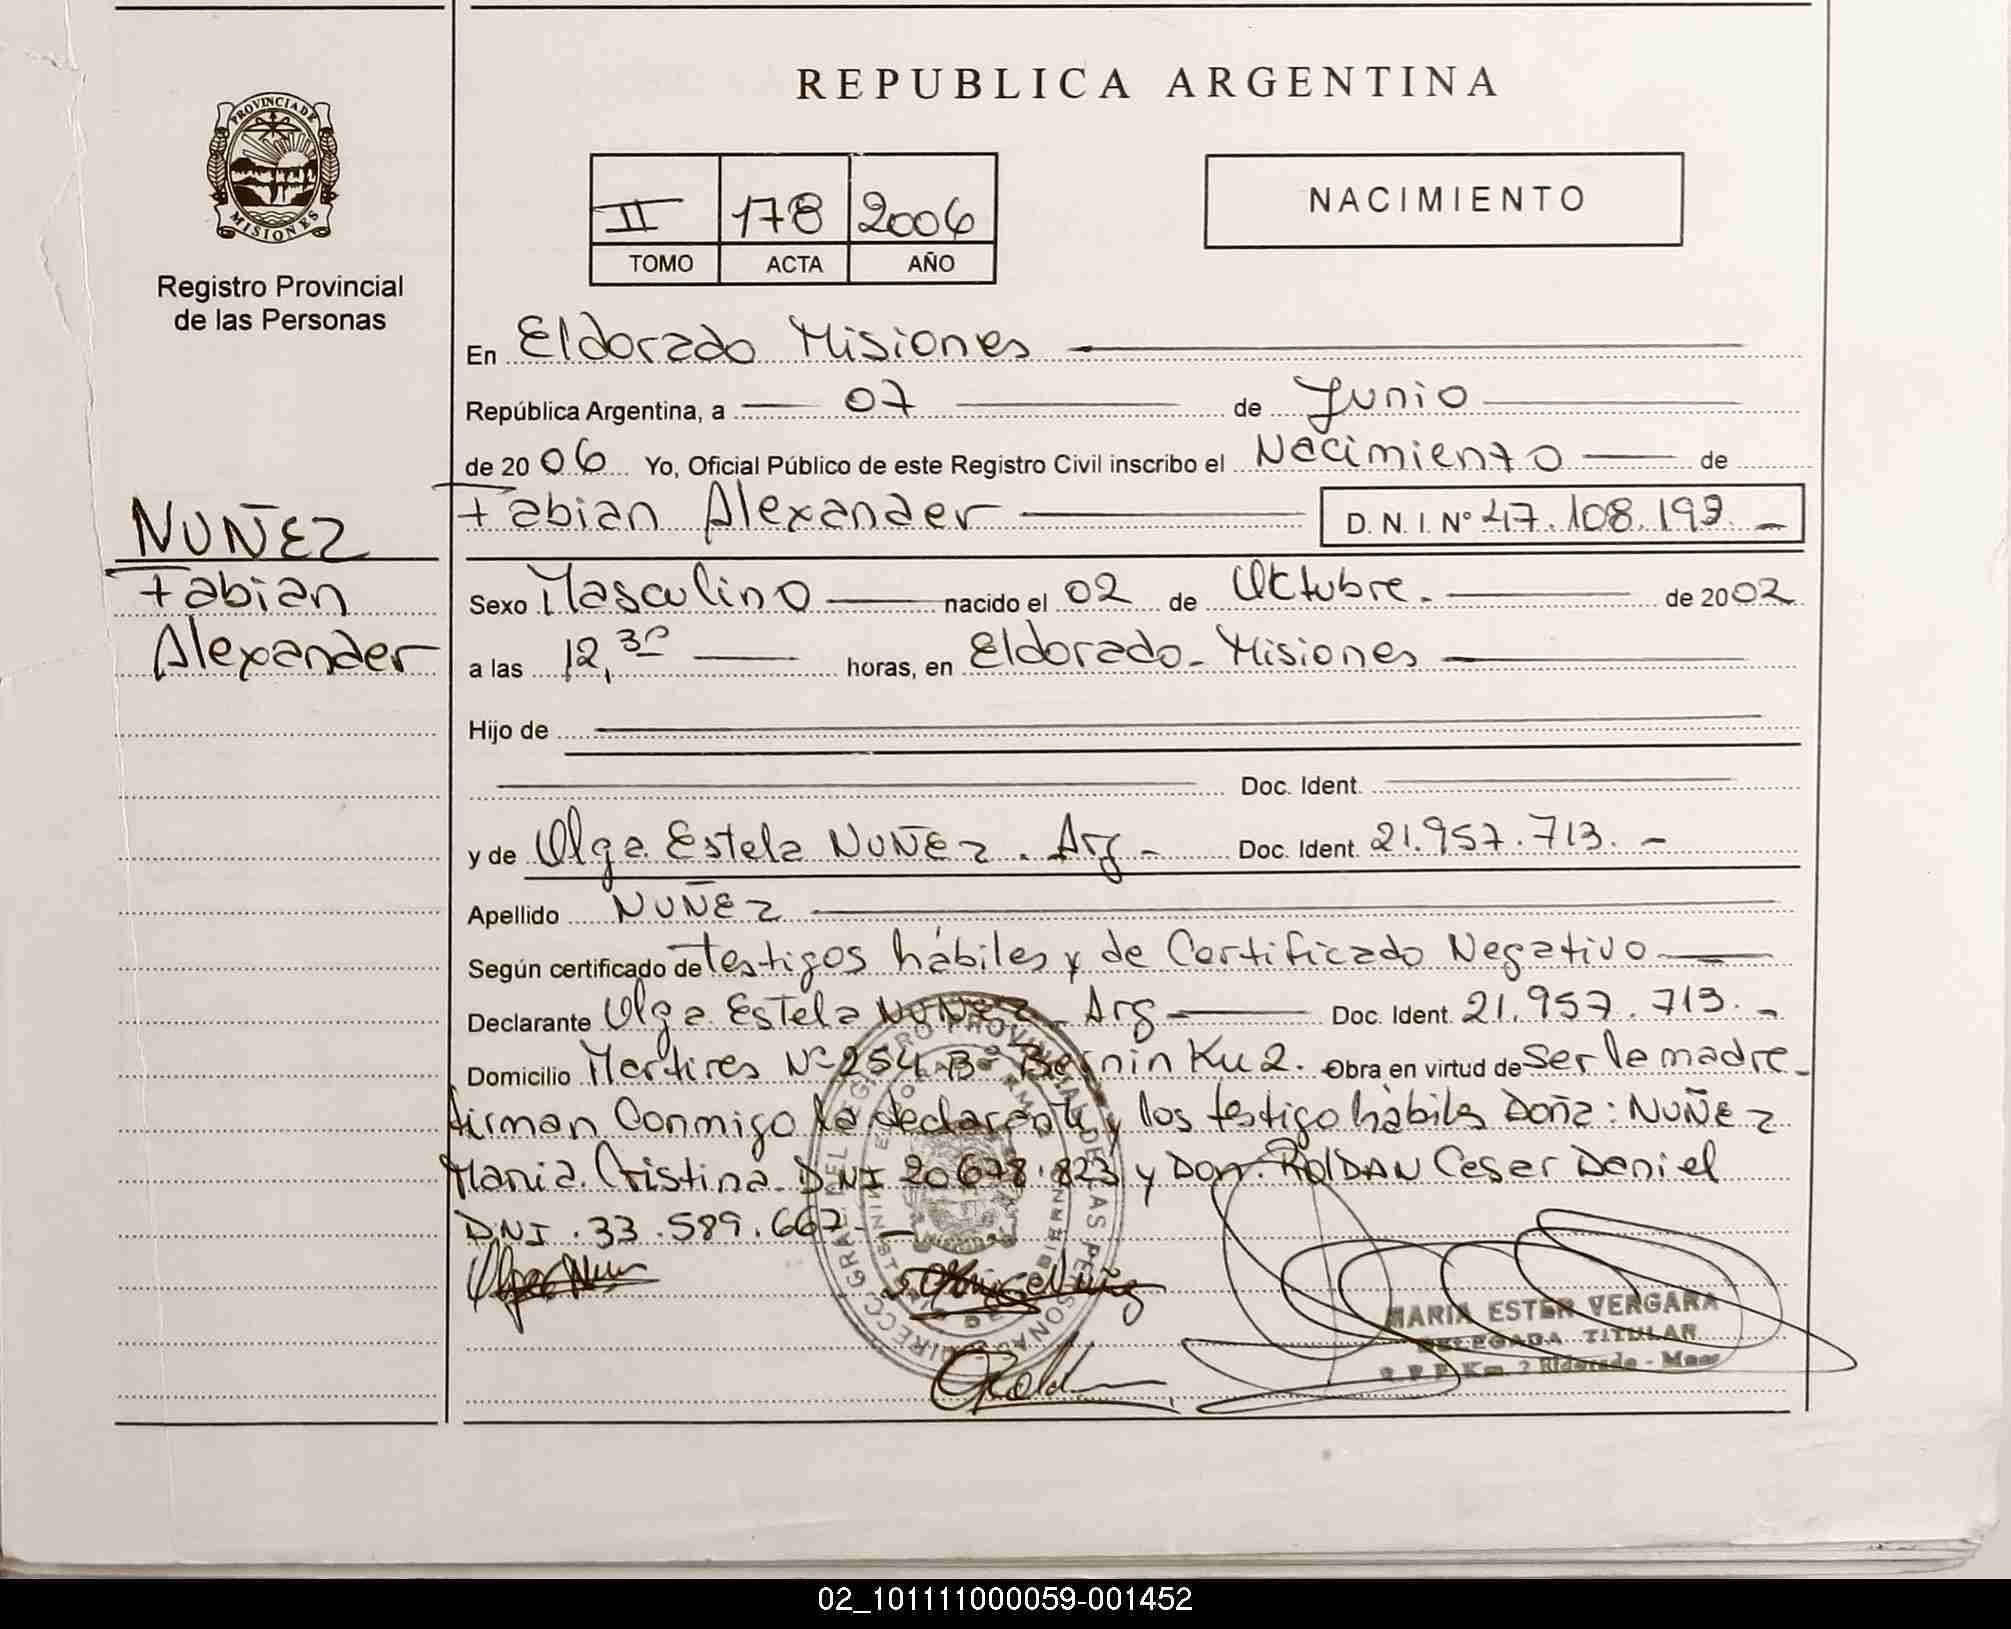 REPUBLICA ARGENTINA
PROVINCIA DE
MISIONES
Registro Provincial
de las Personas
II 178 2006
TOMO ACTA AÑO
NACIMIENTO
En Eldorado Misiones
República Argentina, a 07 de Junio
de 2006 Yo, Oficial Público de este Registro Civil inscribo el Nacimiento de
Fabian Alexander D.N.I. Nº 47.108.192.-
NUÑEZ
Fabian
Alexander
Sexo Masculino nacido el 02 de Octubre. de 2002
a las 12,30 horas, en Eldorado - Misiones
Hijo de
Doc. Ident.
y de Olga Estela NUÑEZ. Arg - Doc. Ident. 21.957.713. -
Apellido NUÑEZ
Según certificado de testigos hábiles y de Certificado Negativo
Declarante Olga Estela NUÑEZ - Arg Doc. Ident. 21.957.713. -
Domicilio Martires Nº 254 Bº Km 2. Obra en virtud de ser la madre -
firman Conmigo la declarante y los testigo hábiles Doña: NUÑEZ
Maria Cristina DNI 20678.823 y Don: ROLDAN Cesar Daniel
DNI. 33.589.667.-
MARIA ESTER VERGARA
DELEGADA TITULAR
R.P.P. Km. 2 Eldorado - Mnes
02_101111000059-001452